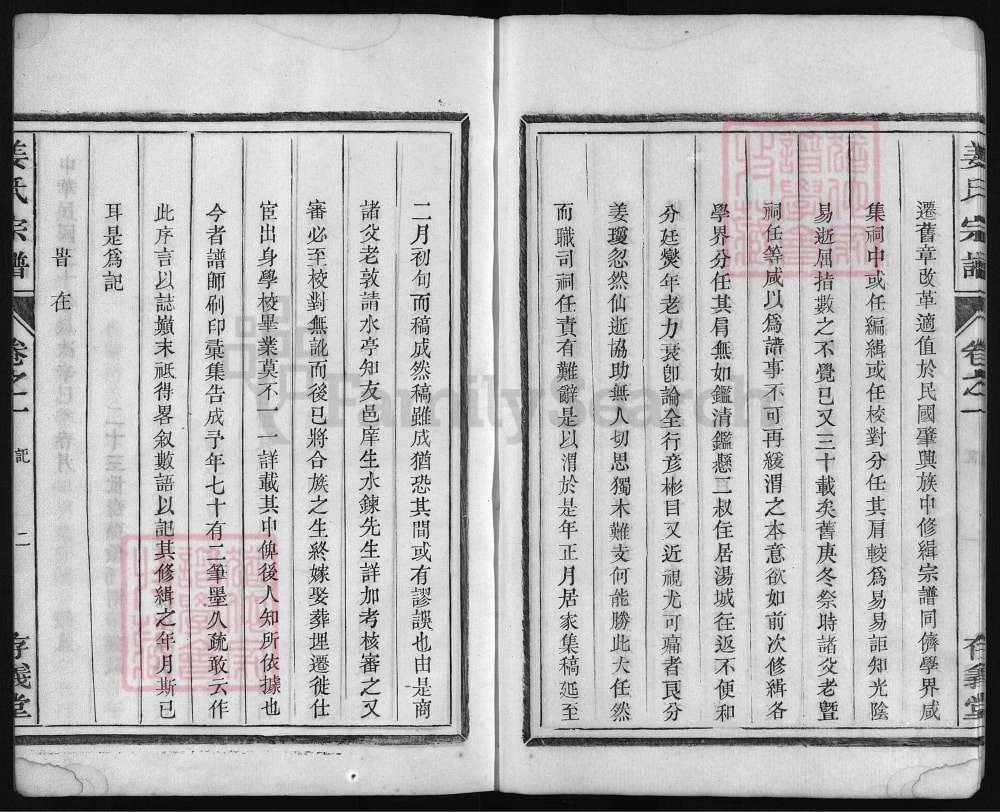 姜氏宗譜 卷之一 存義堂
遷舊章改革適值於民國肇興族中修緝宗譜同儕學界咸
集祠中或任編緝或任校對分任其肩較爲易易詎知光陰
易逝屈指數之不覺已又三十載矣舊庚冬祭時諸父老暨
祠任等咸以爲諸事不可再緩渭之本意欲如前次修緝各
學界分任其肩無如鑑清鑑懸二叔住居湯城往返不便和
分廷爕年老力衰卽論全行彦彬目又近視尤可痛者艮分
姜瓊忽然仙逝協助無人切思獨木難支何能勝此大任然
而職司祠任責有難辭是以渭於是年正月居家集稿延至
二月初旬而稿成然稿雖成猶恐其間或有謬誤也由是商
諸父老敦請水亭知友邑庠生水鍊先生詳加考核審之又
審必至校對無訛而後已將合族之生終嫁娶葬埋遷徙仕
宦出身學校畢業莫不一一詳載其中俾後人知所依據也
今者譜師刷印彙集告成予年七十有二筆墨久疏敢云作
此序言以誌巔末祇得畧叙數語以記其修緝之年月斯已
耳是爲記
旹在
姜氏宗譜 卷之一 記 二 存義堂
FamilySearch